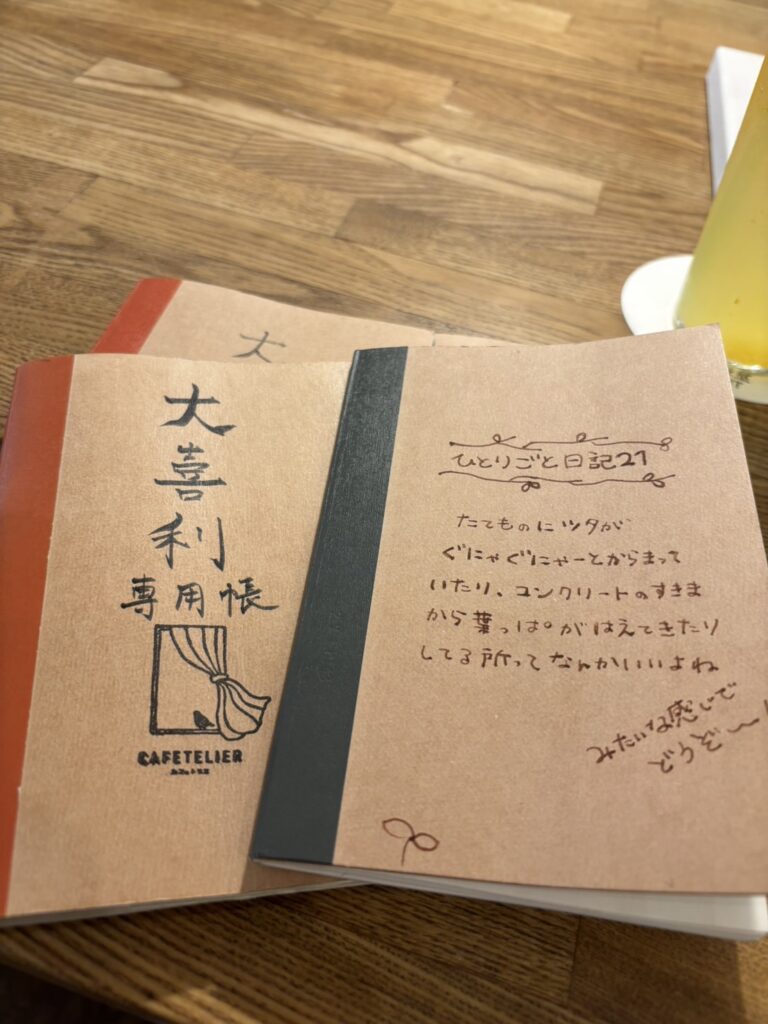 大
大
喜
利
専用帳
CAFETELIER
ひとりごと日記21
たてものにツタが
ぐにゃぐにゃーとからまって
いたり、コンクリートのすきま
から葉っぱがはえてきたり
してる所ってなんかいいよね
みたいな感じで
どうぞ〜!